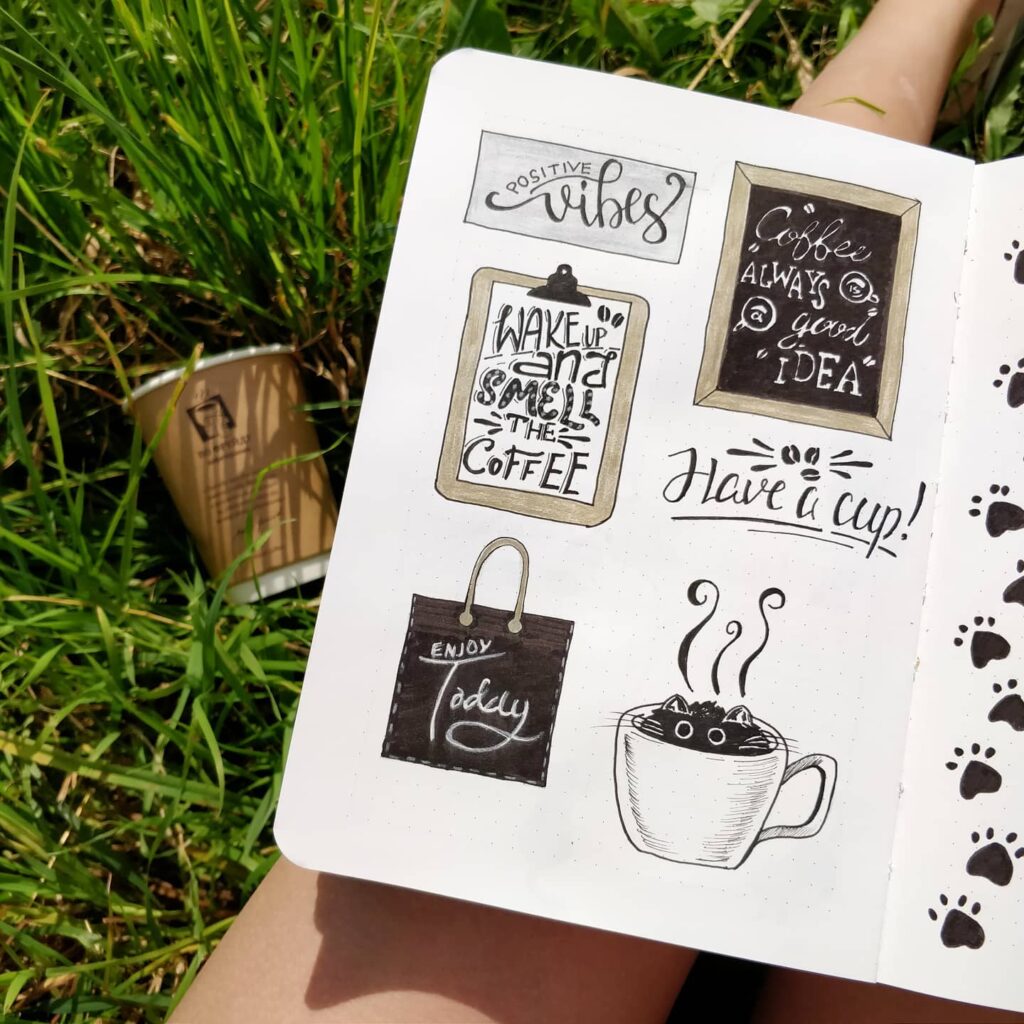 POSITIVE
vibes
"Coffee
"ALWAYS is
a good
"IDEA"
WAKE UP
and
SMELL
THE
COFFEE
Have a cup!
ENJOY
Toddy